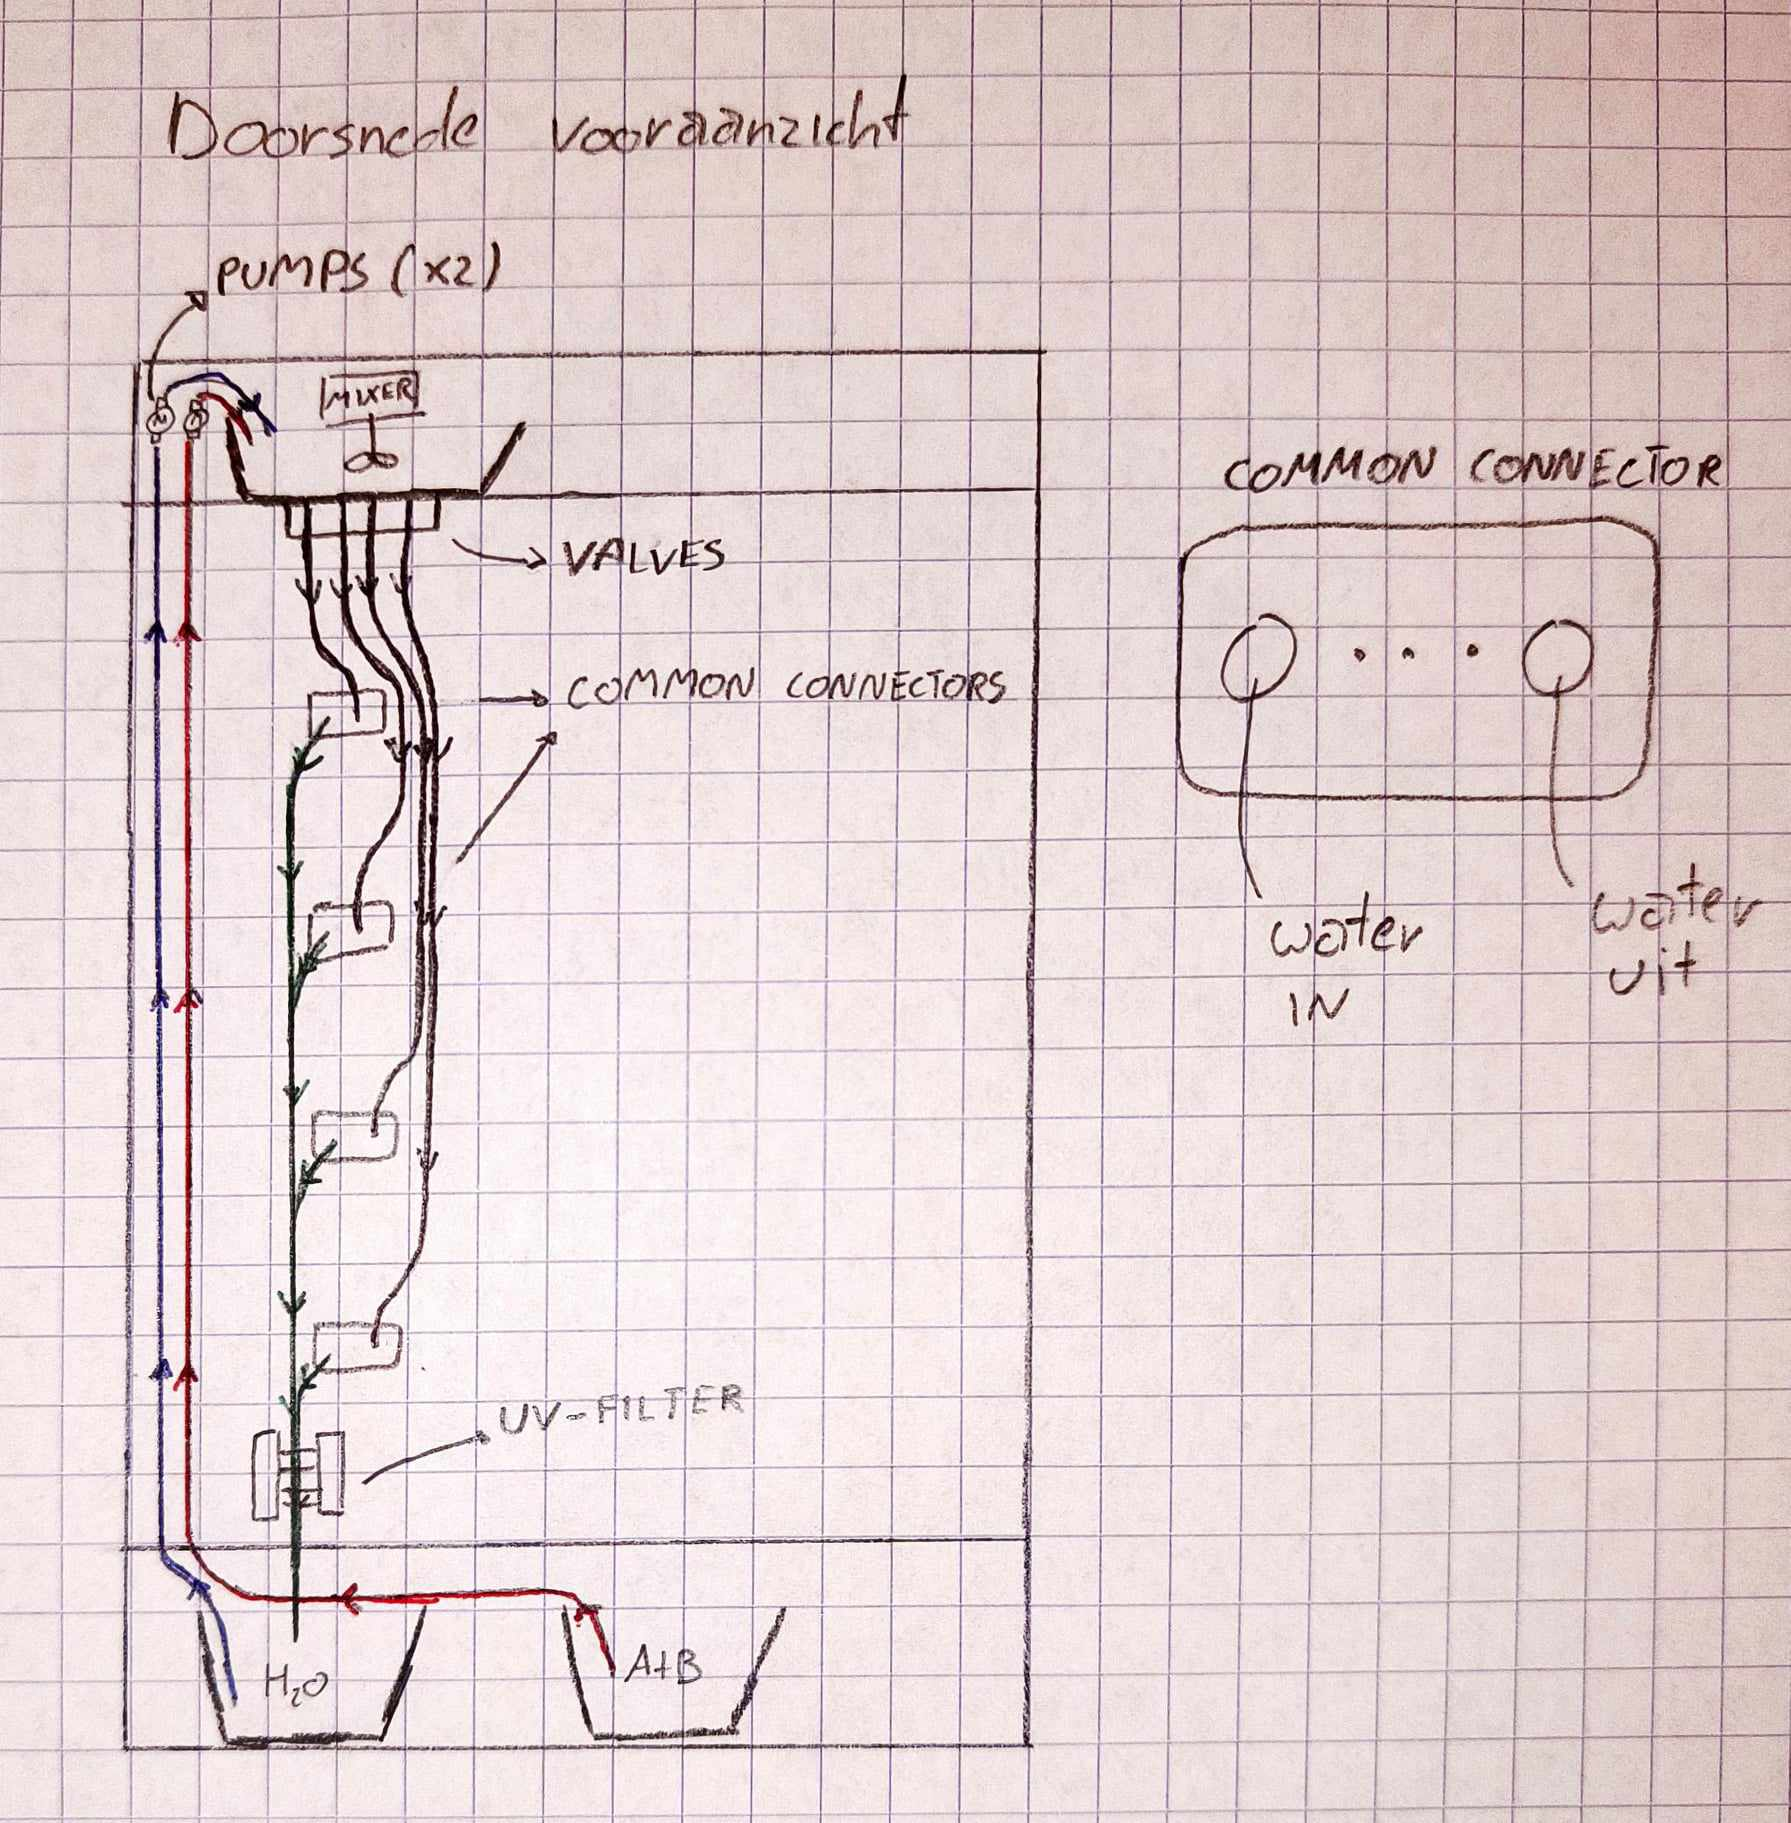 Doorsnede vooraanzicht
PUMPS (x2)
MIXER
VALVES
COMMON CONNECTORS
UV-FILTER
H₂O
A+B
COMMON CONNECTOR
water
IN
water
uit